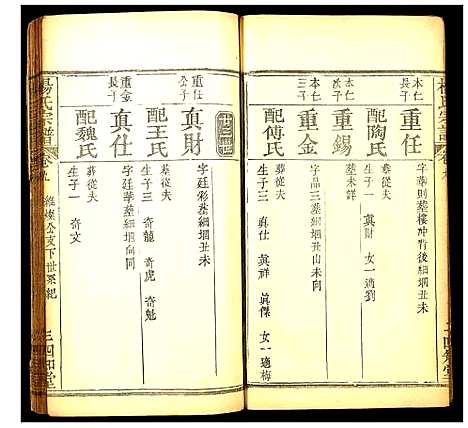 楊氏宗譜
本仁長子
重任
字華則墓樓冲背後細垇丑未
配陶氏
墓未詳
生子一 真財 女一適劉
本仁次子
重錫
本仁三子
重金
字品三墓細垇丑山未向
配傅氏
葬從夫
生子三 真仕 真祥 真傑 女一適梅
十三世
重任之子
真財
字廷彩墓細垇丑未
配王氏
墓從夫
生子三 奇龍 奇虎 奇魁
重金長子
真仕
字廷華墓細垇向同
配魏氏
葬從夫
生子一 奇文
楊氏宗譜
卷九
公支下世系紀
三四知堂